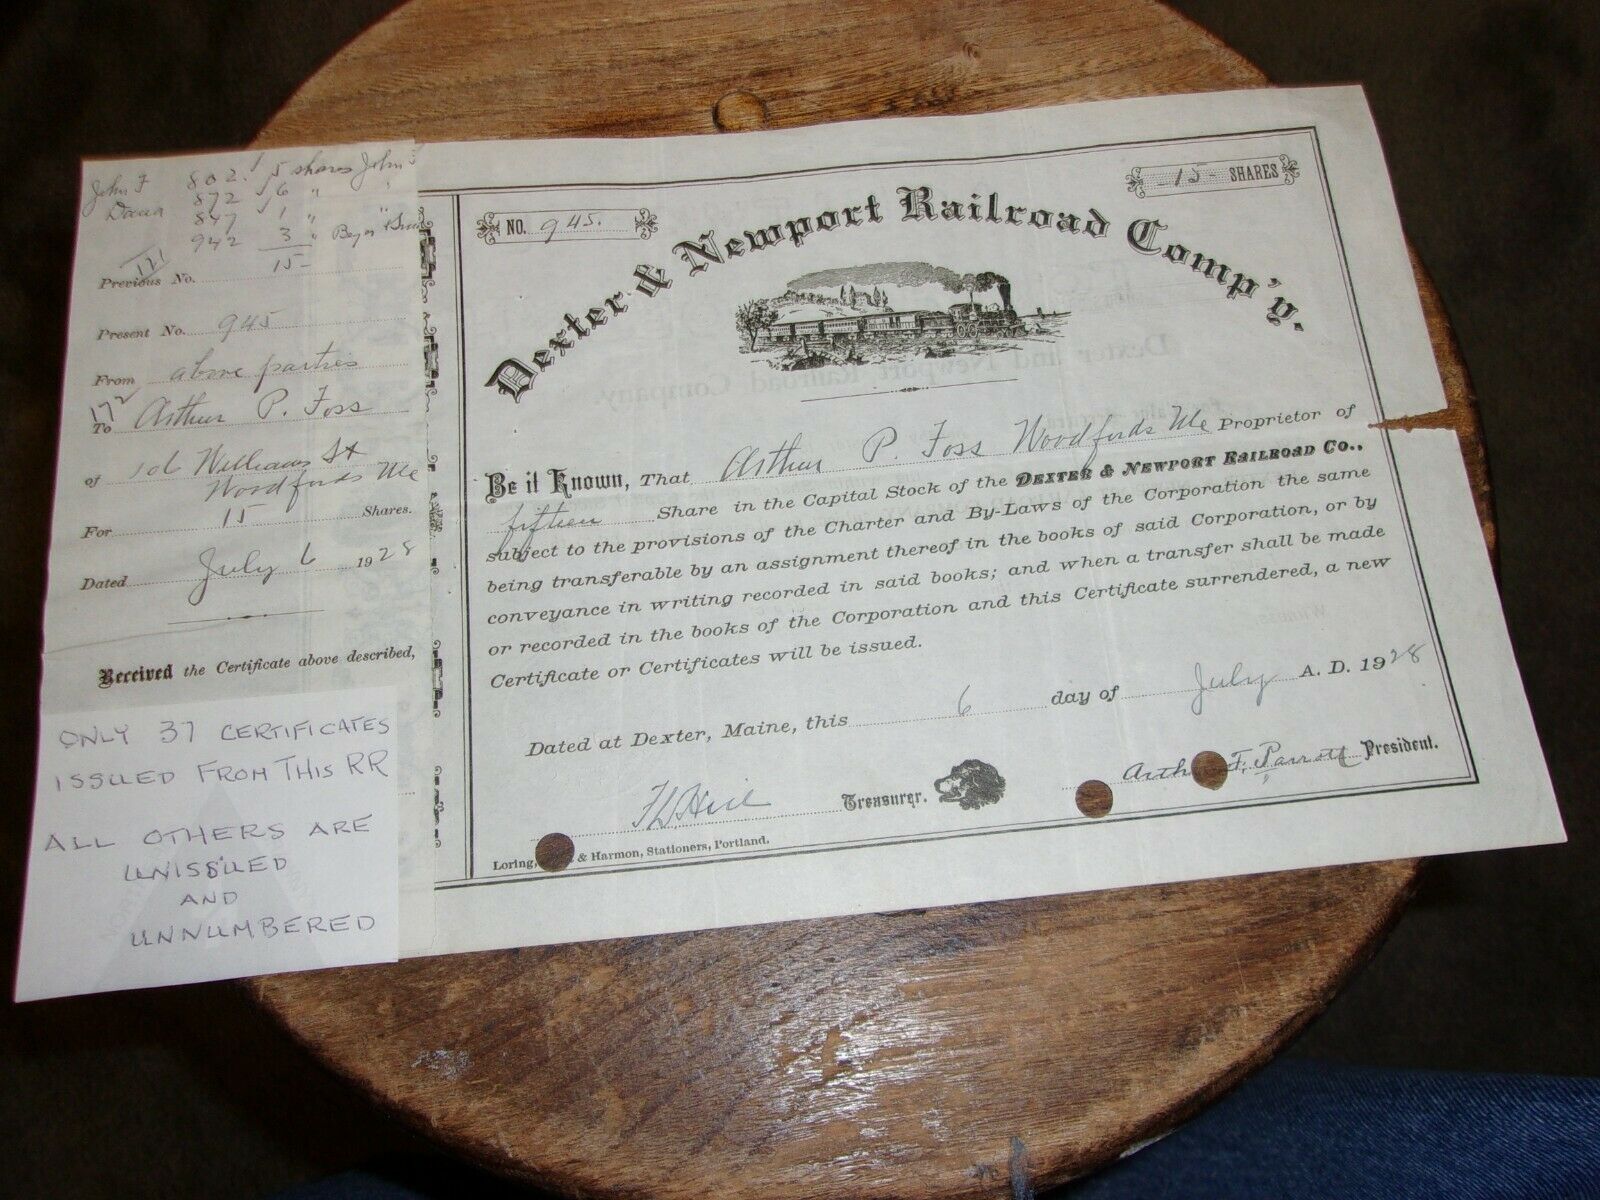 John F 802. 5 shares John
Dana 872 6 "
847 1 "
942 3 "
15
121
Previous No.
Present No. 945
From above parties
172
To Arthur P. Foss
of Williams St
Woodfords Me
For 15 Shares.
Dated July 6 1928
Received the Certificate above described,
ONLY 37 CERTIFICATES
ISSUED FROM THIS RR
ALL OTHERS ARE
UNISSUED
AND
UNNUMBERED
NO. 945.
15 SHARES
Dexter & Newport Railroad Comp'y.
Be it Known, That Arthur P. Foss Woodfords Me Proprietor of
fifteen Share in the Capital Stock of the DEXTER & NEWPORT RAILROAD CO.,
subject to the provisions of the Charter and By-Laws of the Corporation the same
being transferable by an assignment thereof in the books of said Corporation, or by
conveyance in writing recorded in said books; and when a transfer shall be made
or recorded in the books of the Corporation and this Certificate surrendered, a new
Certificate or Certificates will be issued.
Dated at Dexter, Maine, this 6 day of July A. D. 1928
Treasurer. F. Parrott President.
Loring, & Harmon, Stationers, Portland.